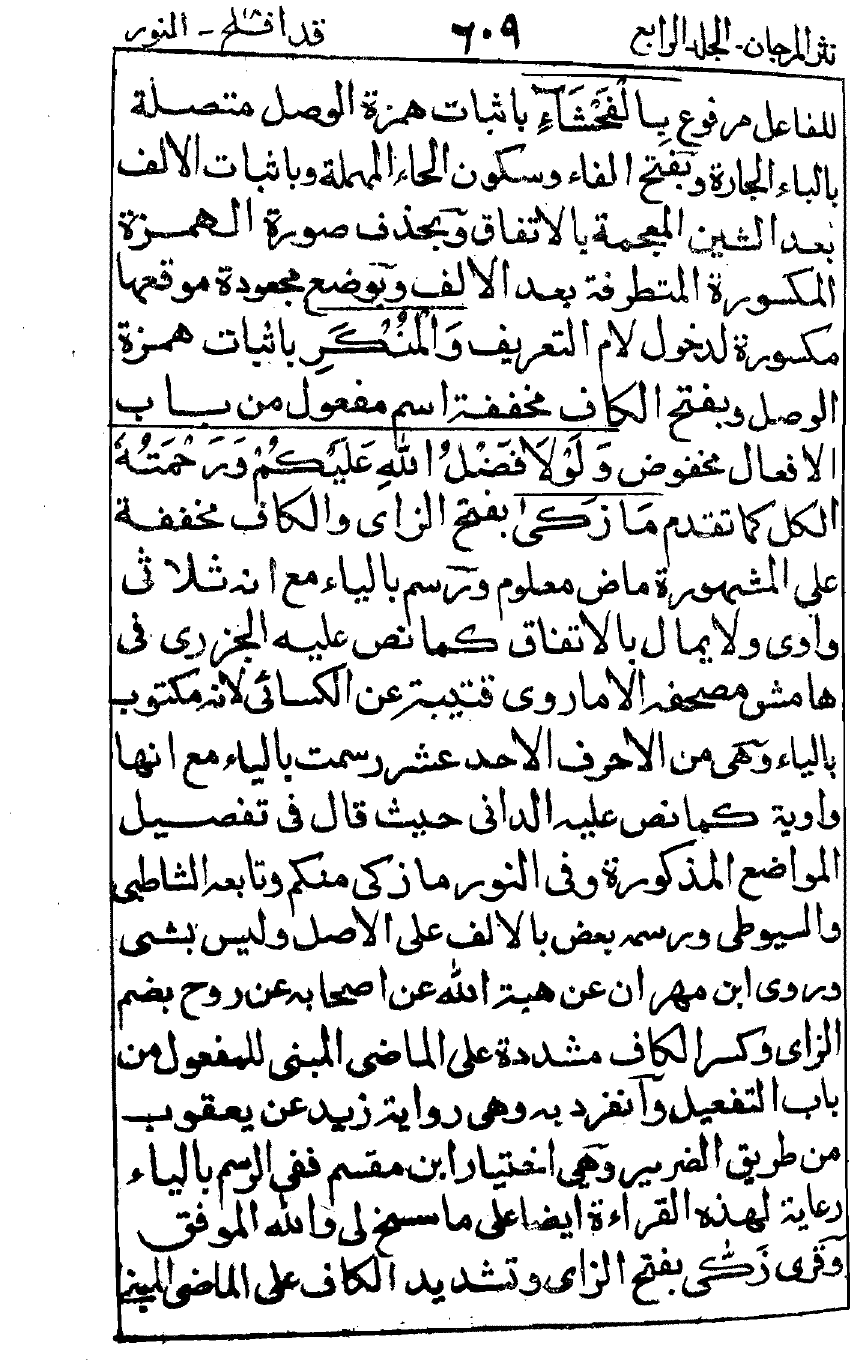 نثر المرجان - الجلد الرابع ٦٠٩ قد افلح ١٨ - النور
للفاعل مرفوع بِالْفَحْشَآءِ باثبات همزة الوصل متصلة
بالباء الجارة وبفتح الفاء وسكون الحاء المهملة وباثبات الالف
بعد الشين المعجمة بالاتفاق وبحذف صورة الهمزة
المكسورة المتطرفة بعد الالف وبوضع مجعودة موقعها
مكسورة لدخول لام التعريف وَالْمُنْكَرِ باثبات همزة
الوصل وبفتح الكاف مخففة اسم مفعول من باب
الافعال مخفوض وَلَوْلَا فَضْلُ اللهِ عَلَيْكُمْ وَرَحْمَتُهٗ
الكل كما تقدم مَا زَكىٰ بفتح الزاى والكاف مخففة
على المشهورة ماض معلوم ورسم بالياء مع انه ثلاثى
واوى ولا يمال بالاتفاق كما نص عليه الجزرى فى
هامش مصحفه الا ما روى قتيبة عن الكسائى لانه مكتوب
بالياء وهى من الاحرف الاحد عشر رسمت بالياء مع انها
واوية كما نص عليه الدانى حيث قال فى تفصيل
المواضع المذكورة وفى النور ما زكى منكم وتابعه الشاطبى
والسيوطى ورسمه بعض بالالف على الاصل وليس بشى
وروى ابن مهران عن هبة الله عن اصحابه عن روح بضم
الزاى وكسر الكاف مشددة على الماضى المبنى للمفعول من
باب التفعيل وانفرد به وهى رواية زيد عن يعقوب
من طريق الضرير وهى اختيار ابن مقسم ففى الرسم بالياء
رعاية لهذه القراءة ايضا على ما سنح لى والله الموفق
وقرى زَكّٰى بفتح الزاى وتشديد الكاف على الماضى المبنى